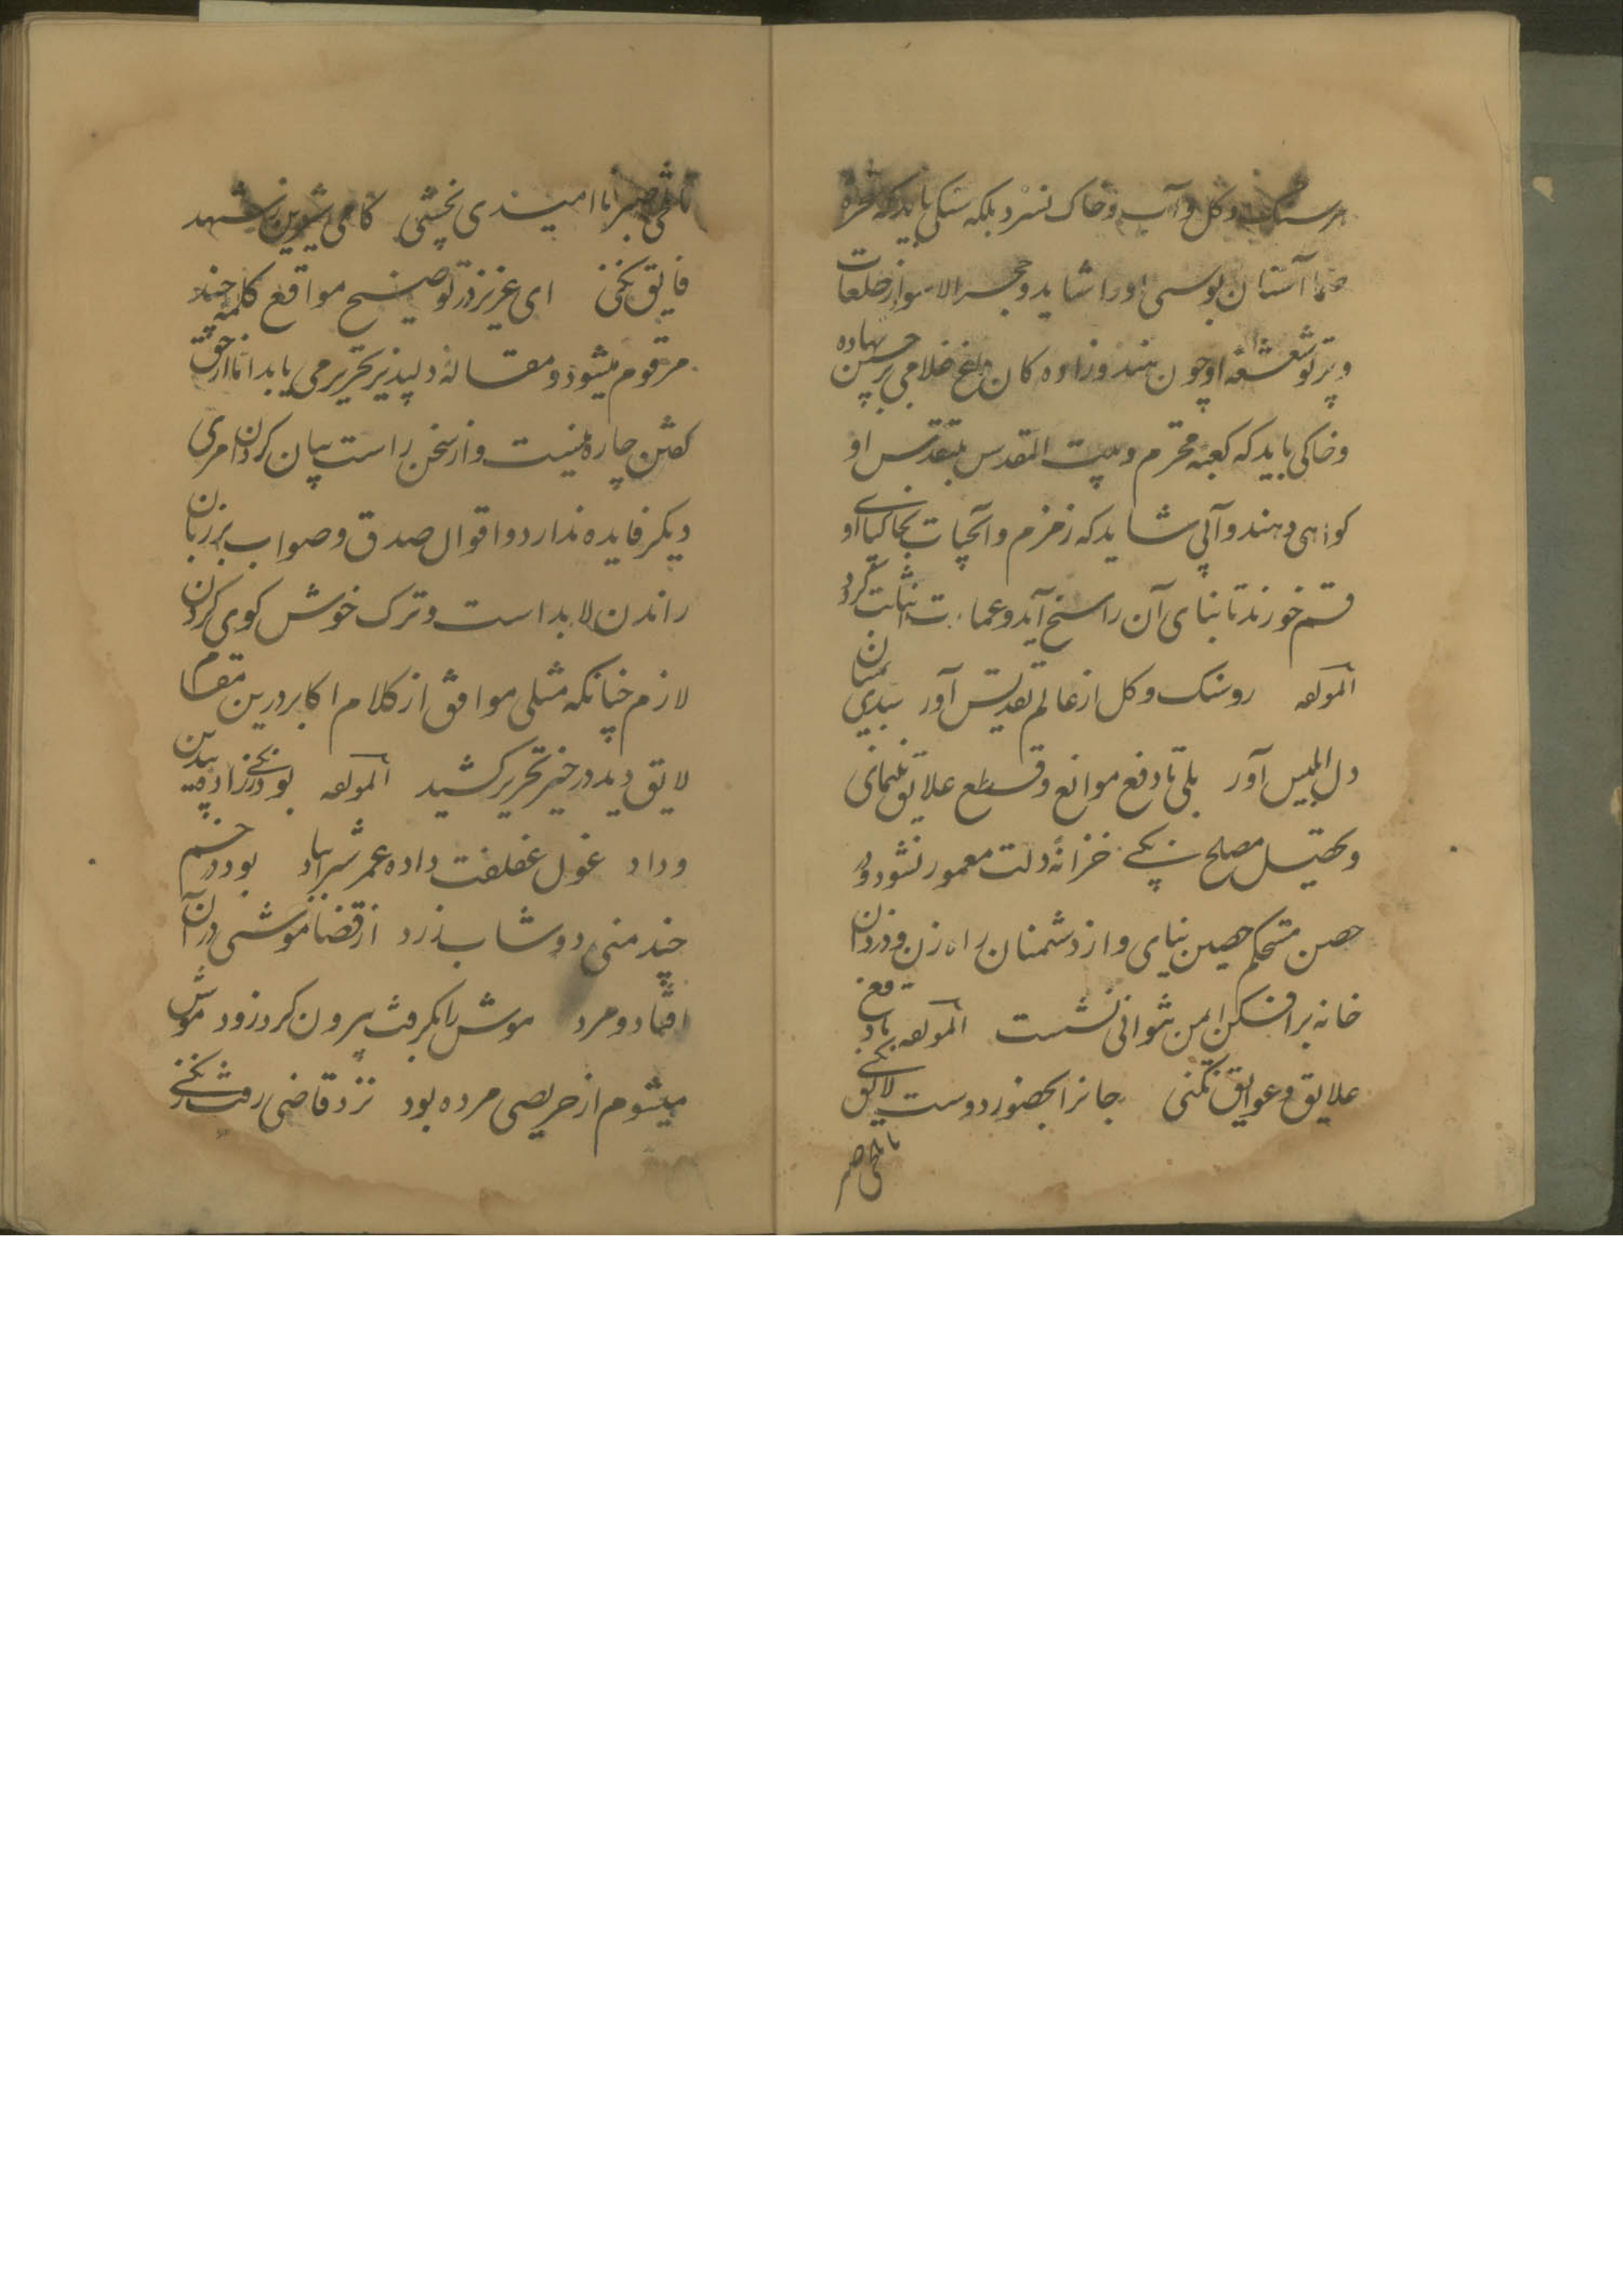 هر سنک و کل و آب و خاک نسزد بلکه سنکی باید که صخره
صما آستان بوسی اورا شاید و حجر الاسود از خلعات
و پرتو شعشعه او چون هندو زاده کان داغ غلامی بر جبین نهاده
و خاکی باید که کعبه محترم و بیت المقدس بتقدس او
کواهی دهند و آبی شاید که زمزم و آبحیات بخاکپای او
قسم خورند تا بنای آن راسخ آید و عمارت اثبات کردد
لمولفه رو سنک و کل از عالم تقدیس آور
دل ابلیس آور بلی تا دفع موانع و قطع علایق ننمای
و تحصیل مصلح نیکی خزانهٔ دلت معمور نشود و در
حصن مستحکم حصین نیای و از دشمنان راه زن و دزدان
خانه برافکن ایمن نتوانی نشست لمولفه تا دفع
علایق و عوایق نکنی جانرا بحضور دوست لایق نکنی
تا تلخی صبر
تا تلخی صبر با امیدی نچشی کامی شیرین ز شهد
فایق نکنی ای عزیز در توضیح مواقع کلمه چند
مرقوم میشود و مقالهٔ دلپذیر تحریر می یابد اما از حق
کفتن چاره نیست و از سخن راست بیان کردن امری
دیکر فایده ندارد و اقوال صدق و صواب بر زبان
راندن لابد است و ترک خوش کوی کردن
لازم چنانکه مثلی موافق از کلام اکابر درین مقام
لایق دید در حیز تحریر کشید لمولفه بود
و داد غول غفلت داده عمرش بباد بود در خم
چند منی دوشاب زرد از قضا موشی در آن
افتاد و مرد موش را بکرفت بیرون کرد زود موش
میشوم از حریصی مرده بود نزد قاضی رفت